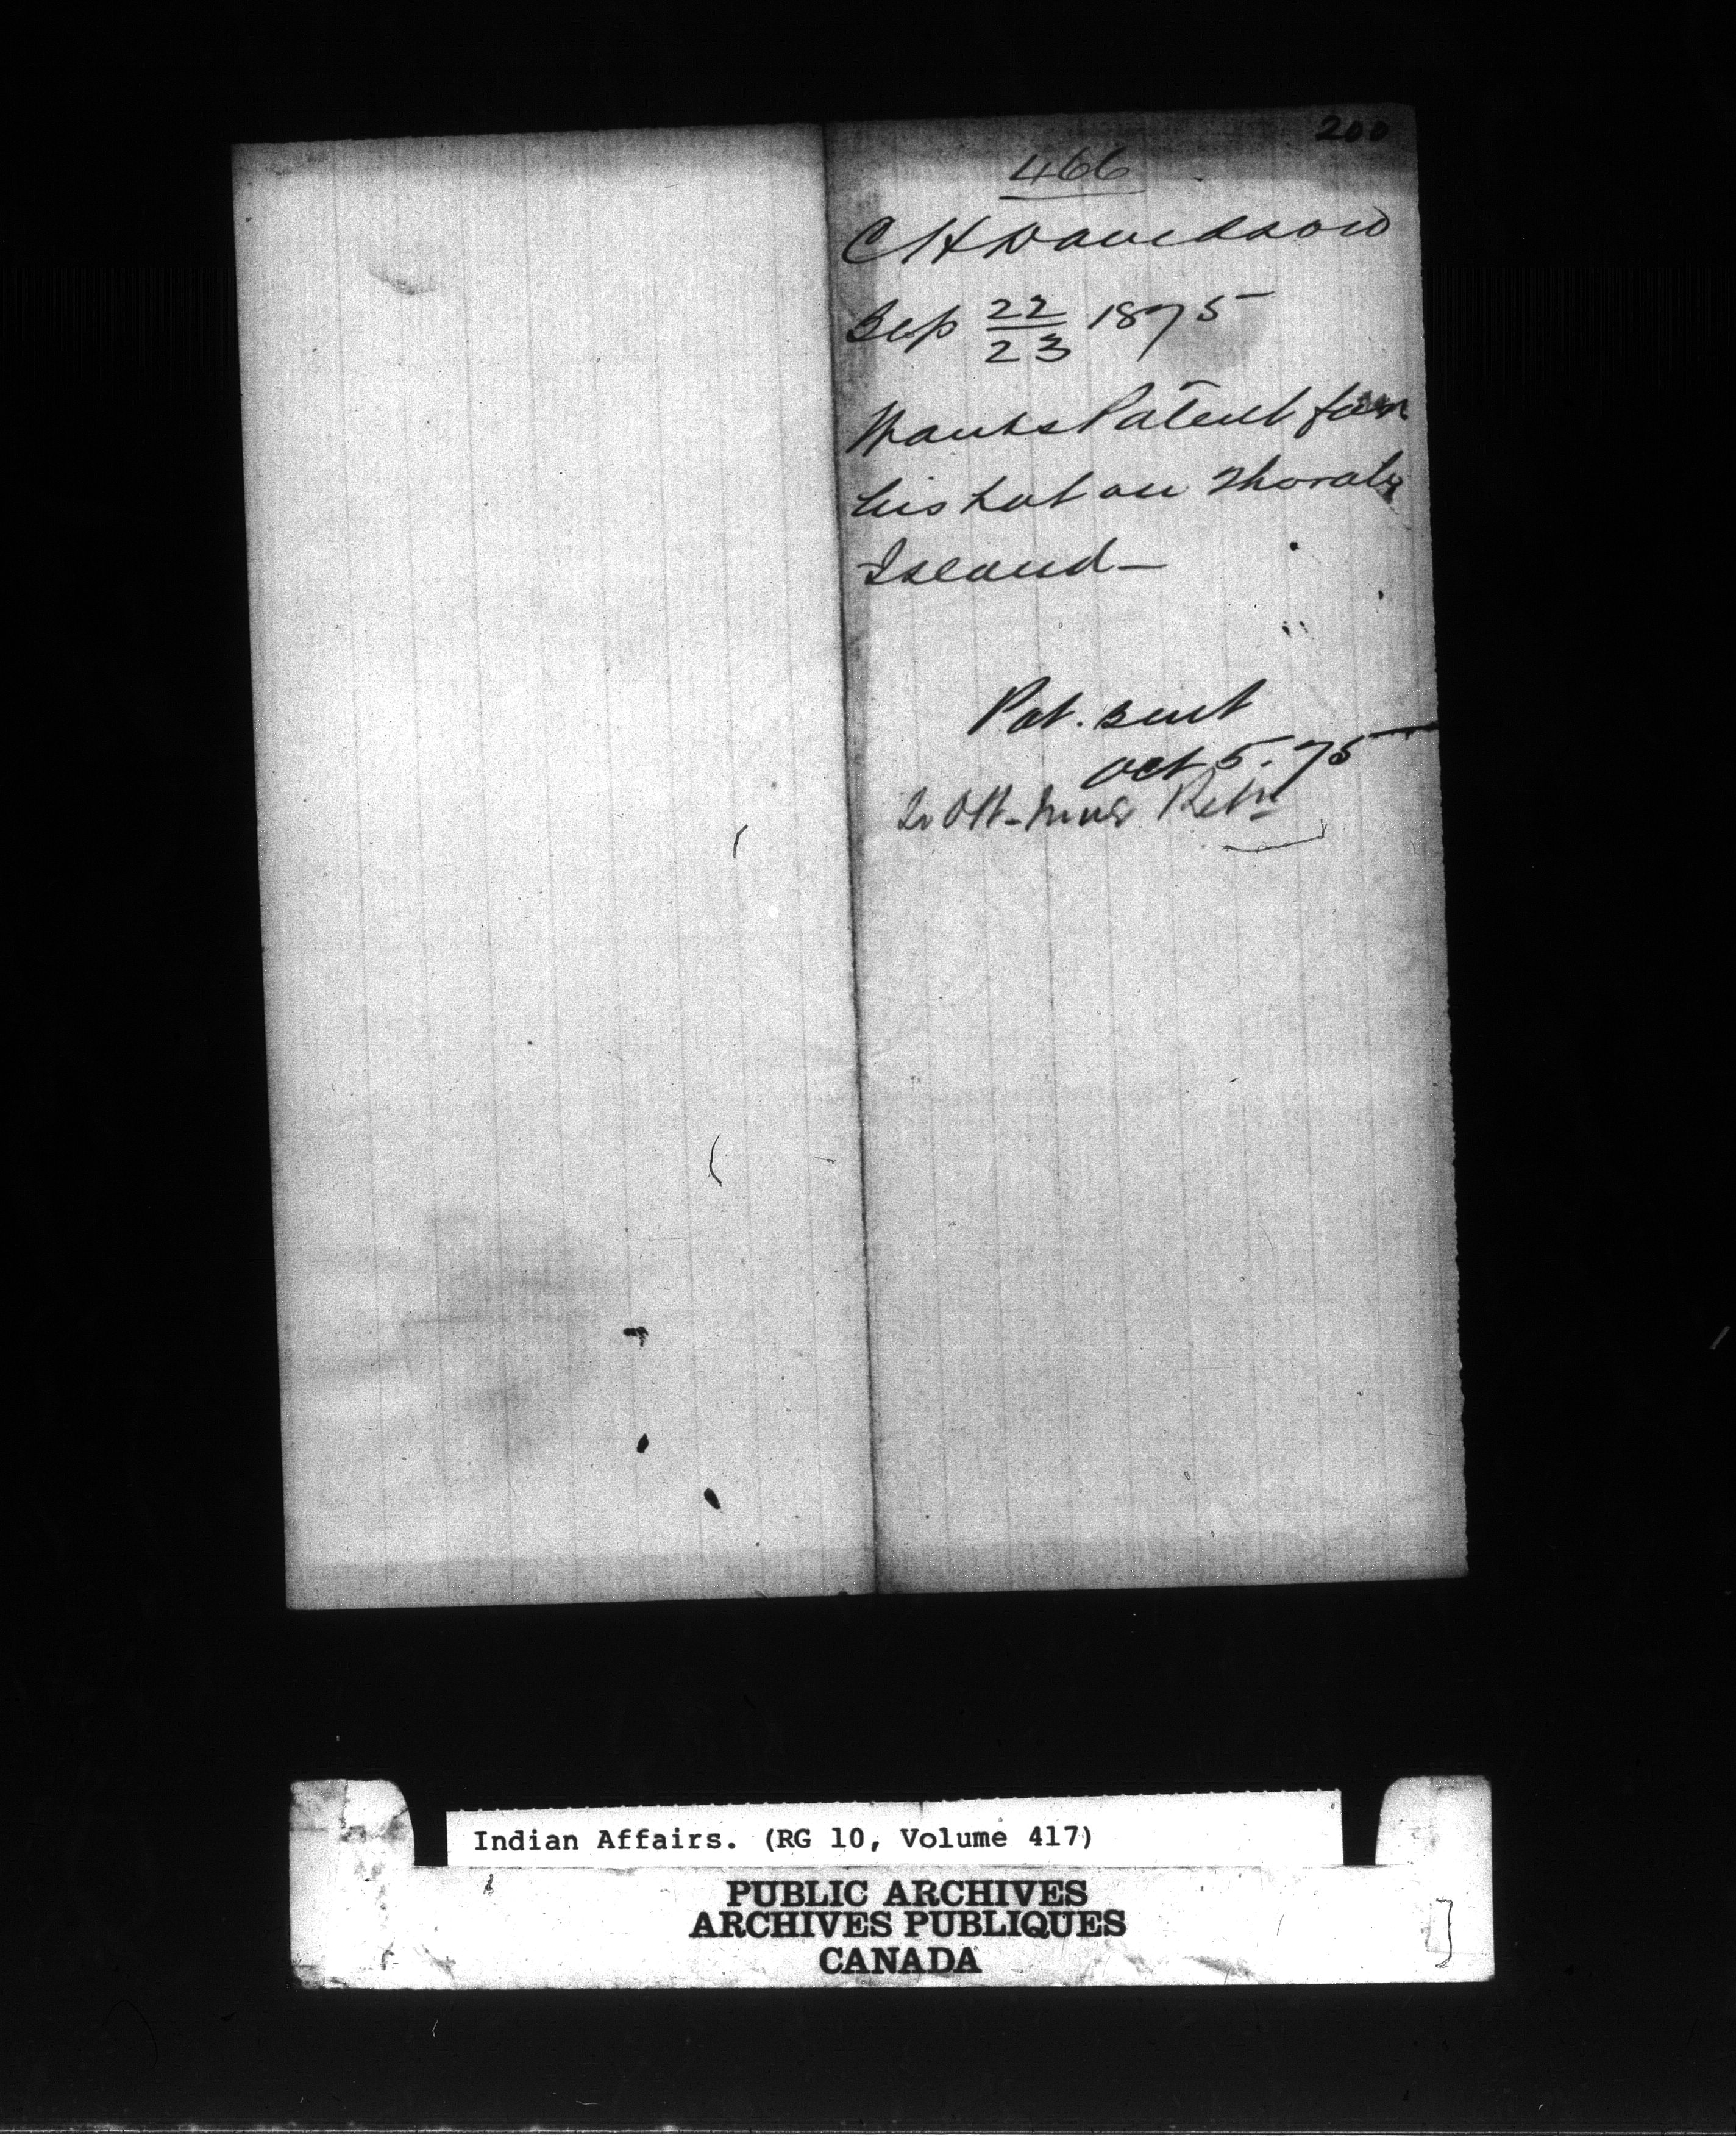 200
466
C H Davidson
Sep 22/23 1875
Wants Patent for
his Lot on Thorah
Island—
Pat. sent
Oct 5. 75
Indian Affairs. (RG 10, Volume 417)
PUBLIC ARCHIVES
ARCHIVES PUBLIQUES
CANADA